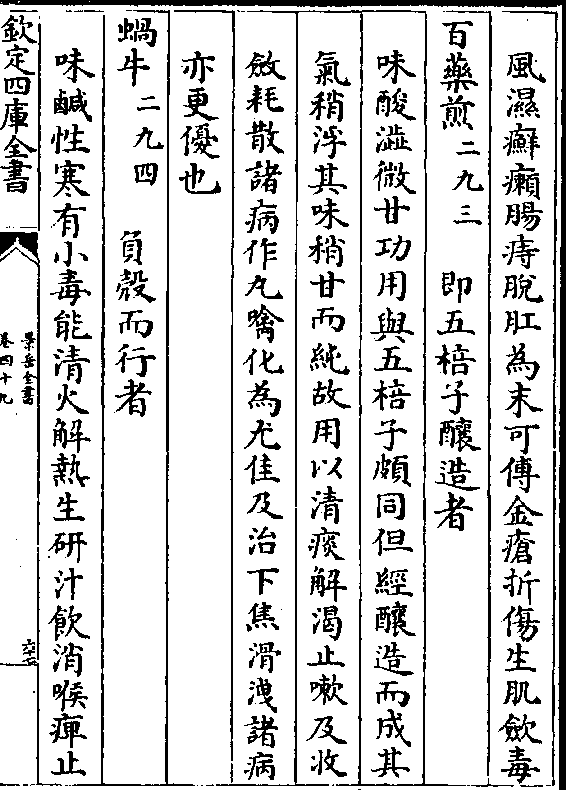 風濕癬癩腸痔脫肛為末可傅金瘡折傷生肌歛毒
百藥煎二九三 即五棓子釀造者
味酸澁微甘功用與五棓子頗同但經釀造而成其
氣稍浮其味稍甘而純故用以清痰解渴止嗽及收
斂耗散諸病作丸噙化為尤佳及治下焦滑洩諸病
亦更優也
蝸牛二九四 負殼而行者
味鹹性寒有小毒能清火解熱生研汁飲消喉痺止
欽定四庫全書
景岳全書
卷四十九